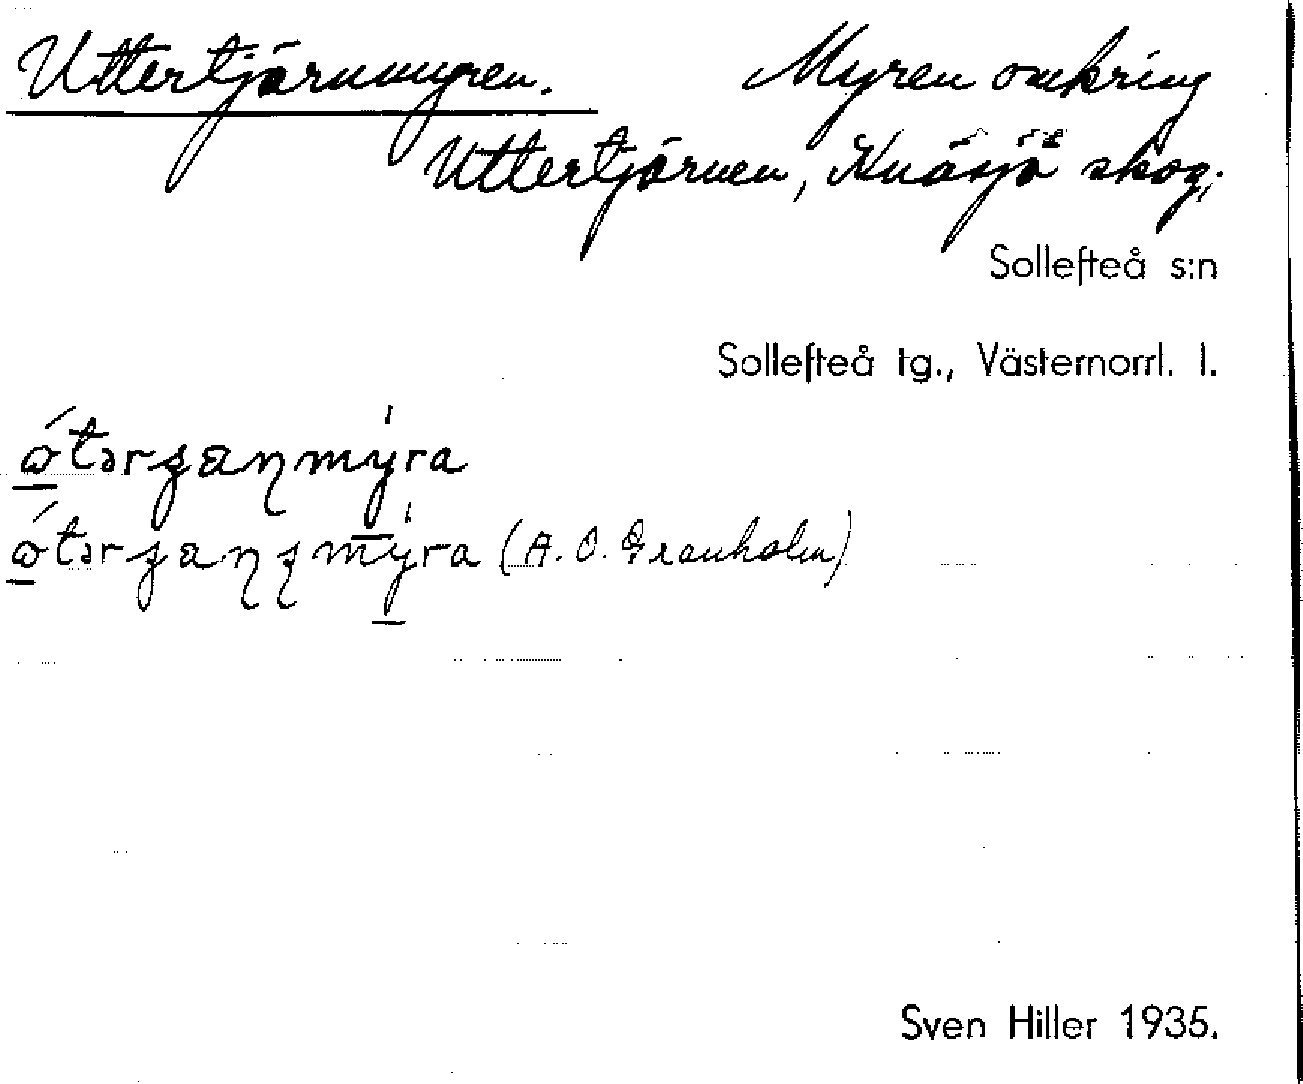 Uttertjärnmyren. Myren omkring
Uttertjärnen, Knäsjö skog,
Sollefteå s:n
Sollefteå tg., Västernorrl. l.
(A. O. Granholm)
Sven Hiller 1935.